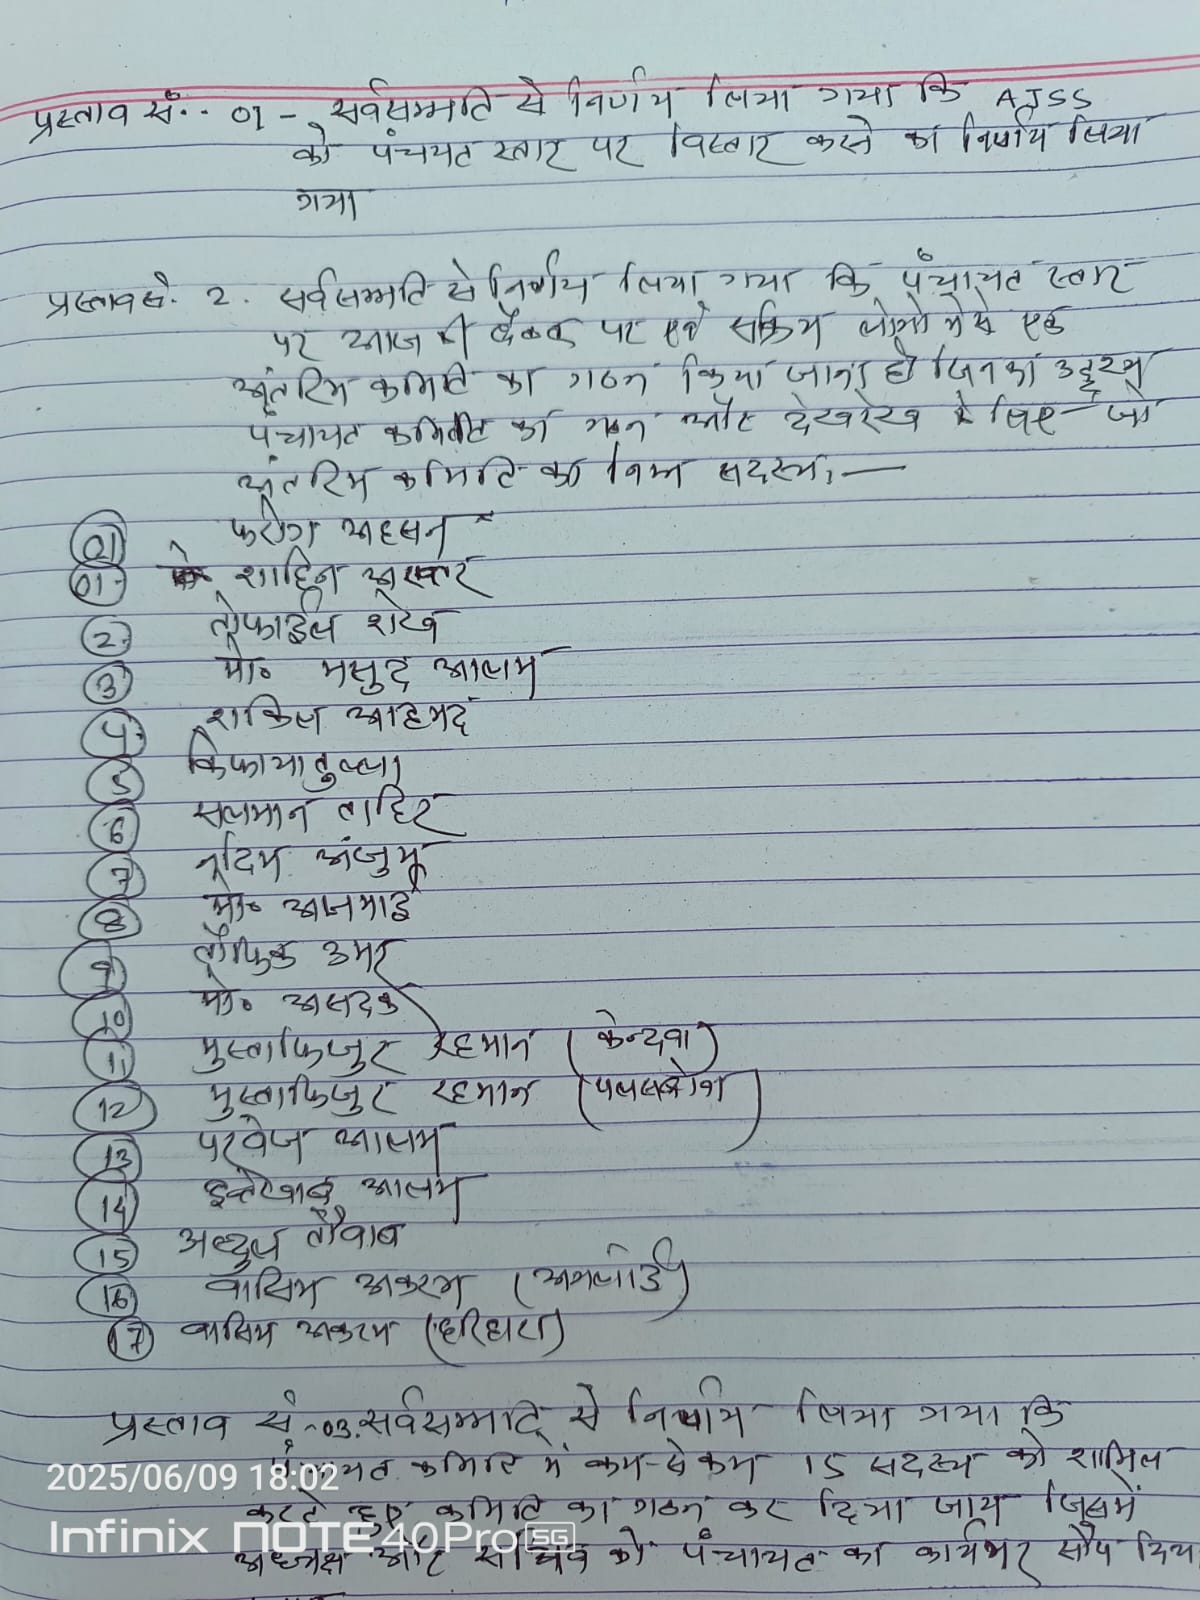 प्रस्ताव सं.. 01 - सर्वसम्मति से निर्णय लिया गया कि AJSS
को पंचयत स्तार पर विस्तार करने का निर्णय लिया
गया
प्रस्ताव सं. 2. सर्वसम्मति से निर्णय लिया गया कि पंचायत स्तार
पर आज की बैठक पर एवं सक्रिय लोगो मे से एक
अंतरिम कमिटि का गठन किया जाना है जिनका उद्देश्य
पंचायत कमिटि का गठन और देखरेख के लिए जो
अंतरिम कमिटि का निम्न सदस्य :—
01 फरोग अहसन
01. शाहिन अख्तर
2. तोफाईल शेख
3 मो० मसुद आलम
4. शाकिल आहमद
5 किफायातुल्ला
6 सलमान ताहिर
7 नदिम अंजुम
8 मो०
9 तौफिक उमर
10 मो० असदक
11 मुस्ताफिजुर रहमान (केन्दवा)
12 मुस्ताफिजुर रहमान
13 परवेज आलम
14 इन्तेखाब आलम
15 अब्दुल तौवाब
16 वासिम अकरम
17 वासिम अकरम (हरिहारा)
प्रस्ताव सं-03. सर्वसम्मति से निर्णय लिया गया कि
पंचायत कमिटि में कम-से कम 15 सदस्य को शामिल
करते हुए कमिटि का गठन कर दिया जाय जिसमें
अध्यक्ष और सचिव को पंचायत का कार्यभार सौप दिया
2025/06/09 18:02
Infinix NOTE 40 Pro 5G